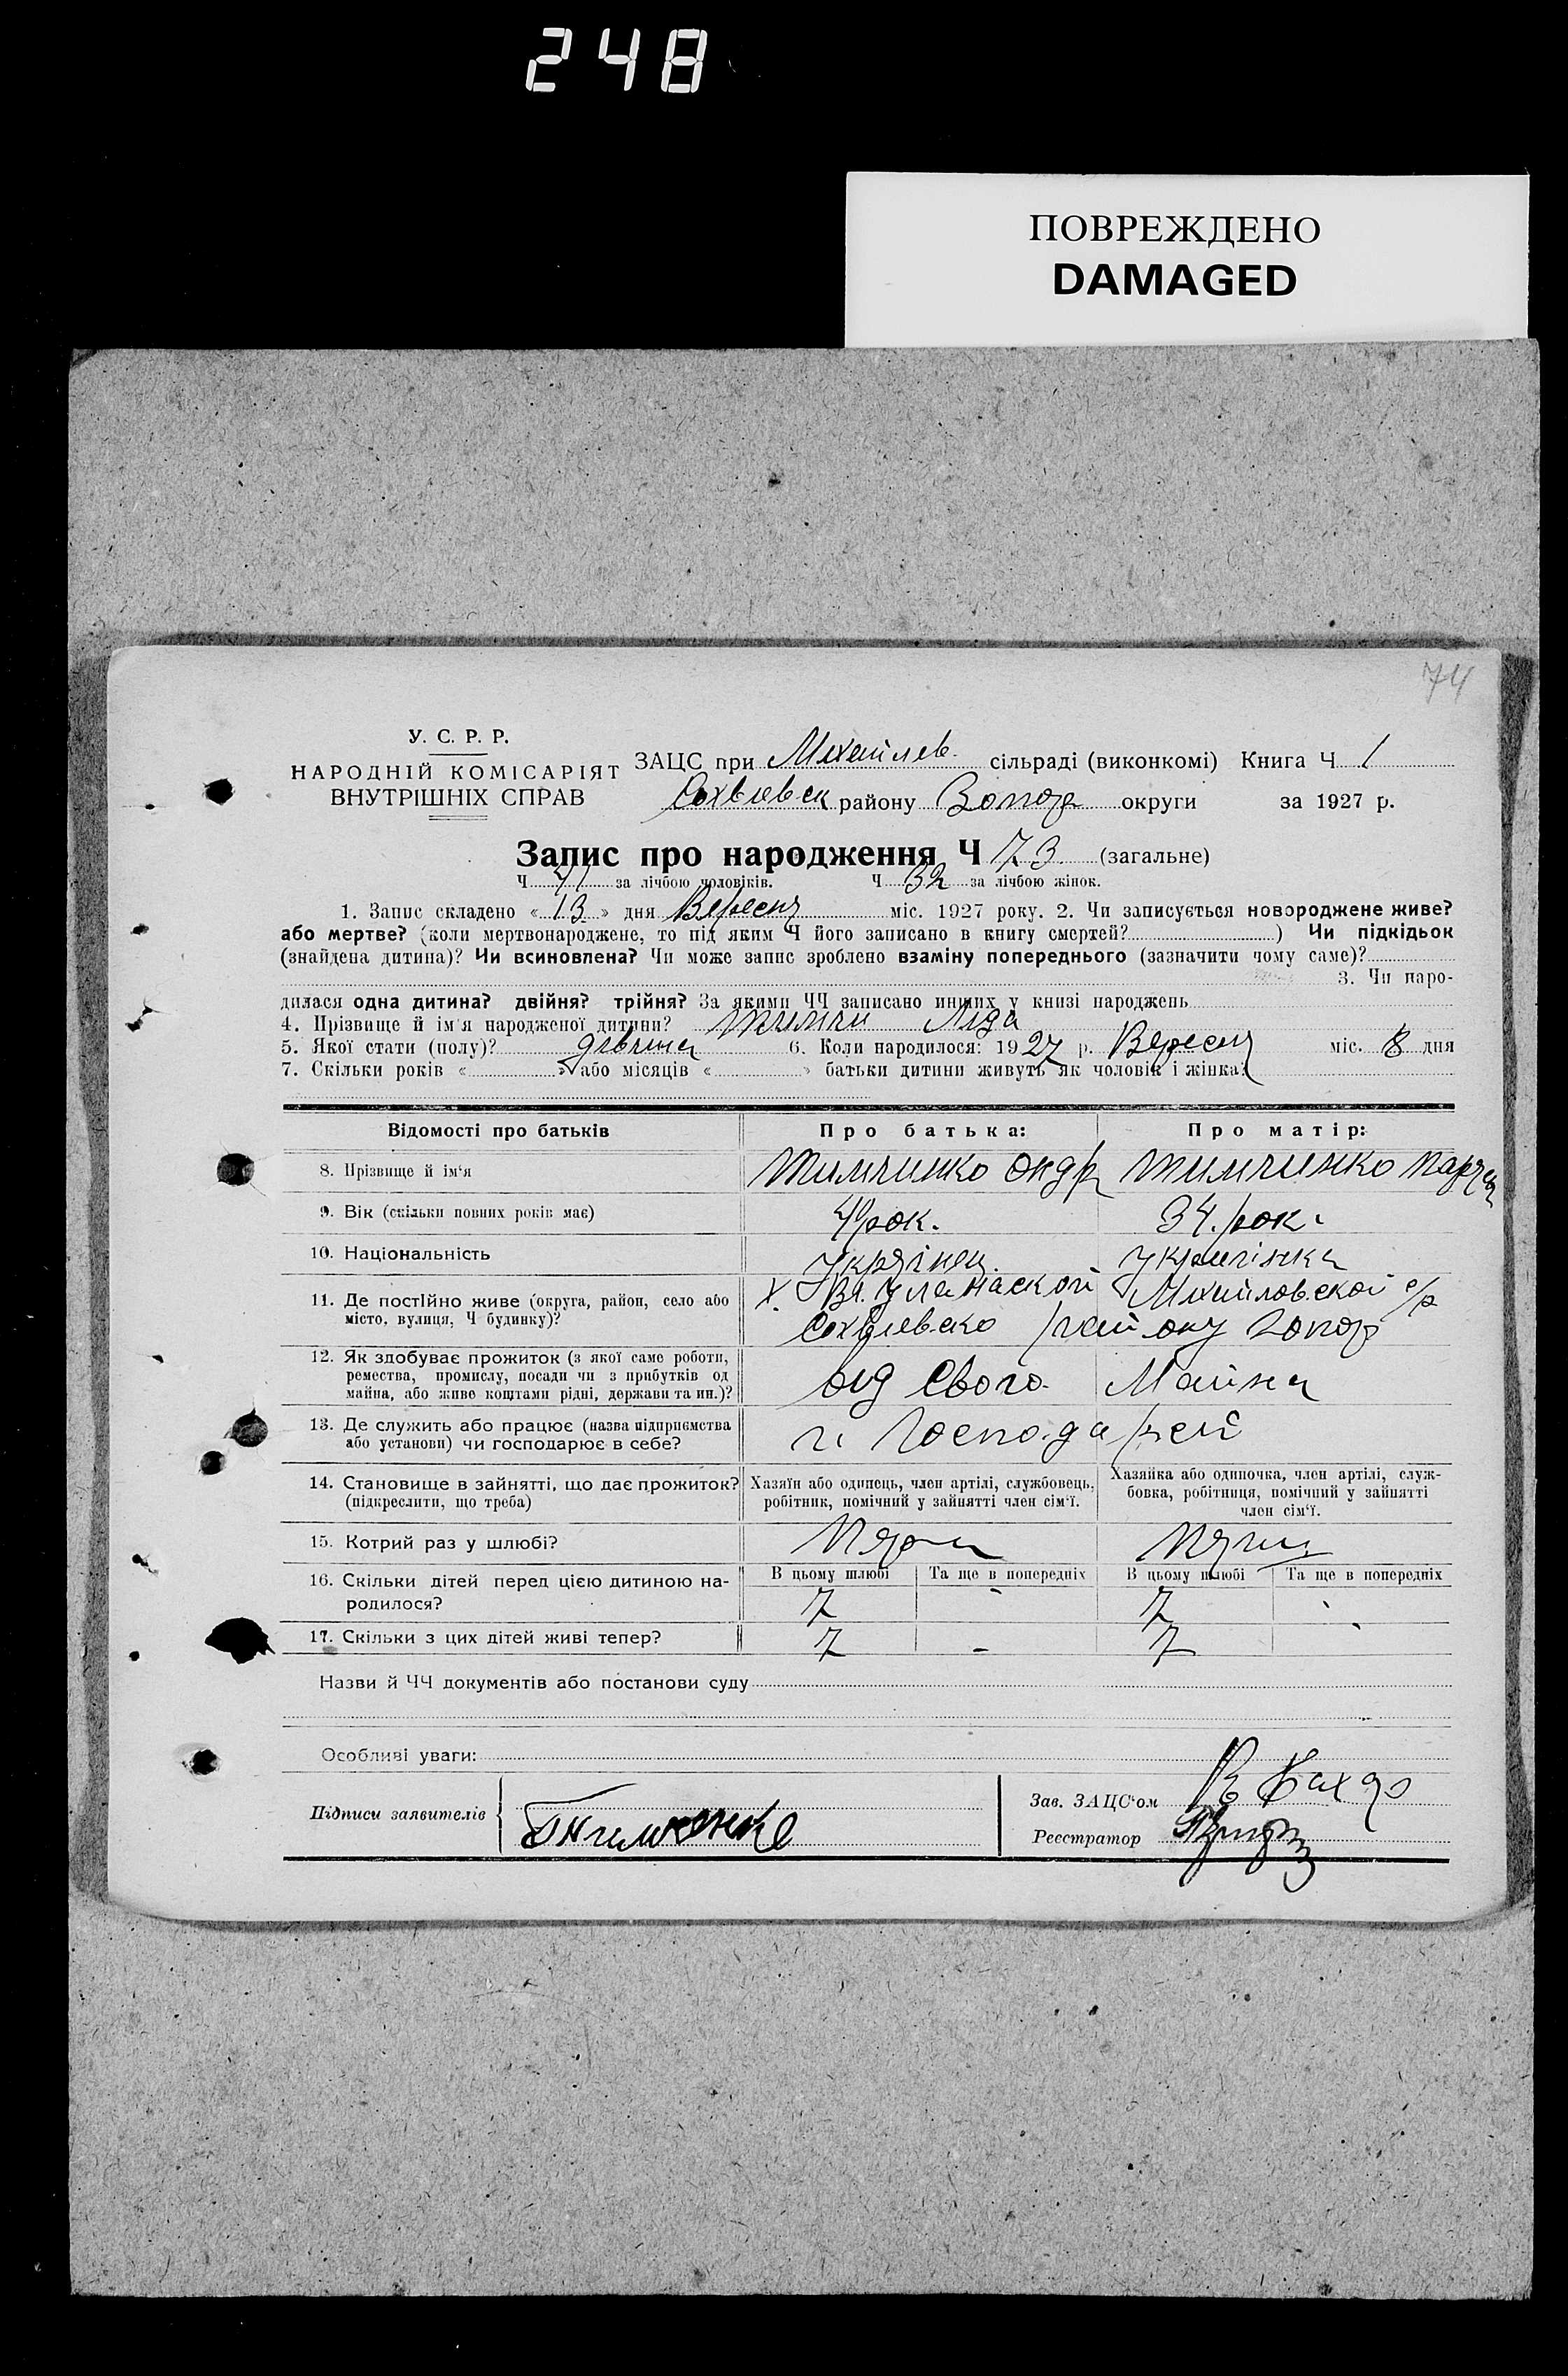 248
ПОВРЕЖДЕНО
DAMAGED
74
У. С. Р. Р.
НАРОДНІЙ КОМІСАРІЯТ
ВНУТРІШНІХ СПРАВ
ЗАЦС при Михайлев. сільраді (виконкомі) Книга Ч 1
району Запор округи за 1927 р.
Запис про народження Ч 73 (загальне)
Ч 41 за лічбою чоловіків. Ч 32 за лічбою жінок.
1. Запис складено « 13 » дня Вересня міс. 1927 року. 2. Чи записується новороджене живе?
або мертве? (коли мертвонароджене, то під яким Ч його записано в книгу смертей? ) Чи підкідьок
(знайдена дитина)? Чи всиновлена? Чи може запис зроблено взаміну попереднього (зазначити чому саме)?
3. Чи наро-
дилася одна дитина? двійня? трійня? За якими ЧЧ записано инших у книзі народжень
4. Прізвище й ім'я народженої дитини? Ліда
5. Якої стати (полу)? дівчина 6. Коли народилося: 1927 р. Вересня міс. 8 дня
7. Скільки років « » або місяців « » батьки дитини живуть як чоловік і жінка?
Відомості про батьків Про батька: Про матір:
8. Прізвище й ім'я Тимчинко Андр Тимчинко
9. Вік (скільки повних років має) рок. 34. рок.
10. Національність Українец. Українка
11. Де постійно живе (округа, район, село або
місто, вулиця, Ч будинку)?
х. Михайловской с/р
району Запор
12. Як здобуває прожиток (з якої саме роботи,
ремества, промислу, посади чи з прибутків од
майна, або живе коштами рідні, держави та ин.)?
від Свого Майна
13. Де служить або працює (назва підприємства
або установи) чи господарює в себе?
14. Становище в зайнятті, що дає прожиток?
(підкреслити, що треба)
Хазяїн або одинець, член артілі, службовець,
робітник, помічний у зайнятті член сім'ї.
Хазяйка або одиночка, член артілі, служ-
бовка, робітниця, помічний у зайнятті
член сім'ї.
15. Котрий раз у шлюбі?
16. Скільки дітей перед цією дитиною на-
родилося?
В цьому шлюбі Та ще в попередніх В цьому шлюбі Та ще в попередніх
7 - 7 -
17. Скільки з цих дітей живі тепер? 7 - 7 -
Назви й ЧЧ документів або постанови суду
Особливі уваги:
Підписи заявителів
Зав. ЗАЦС'ом
Реєстратор